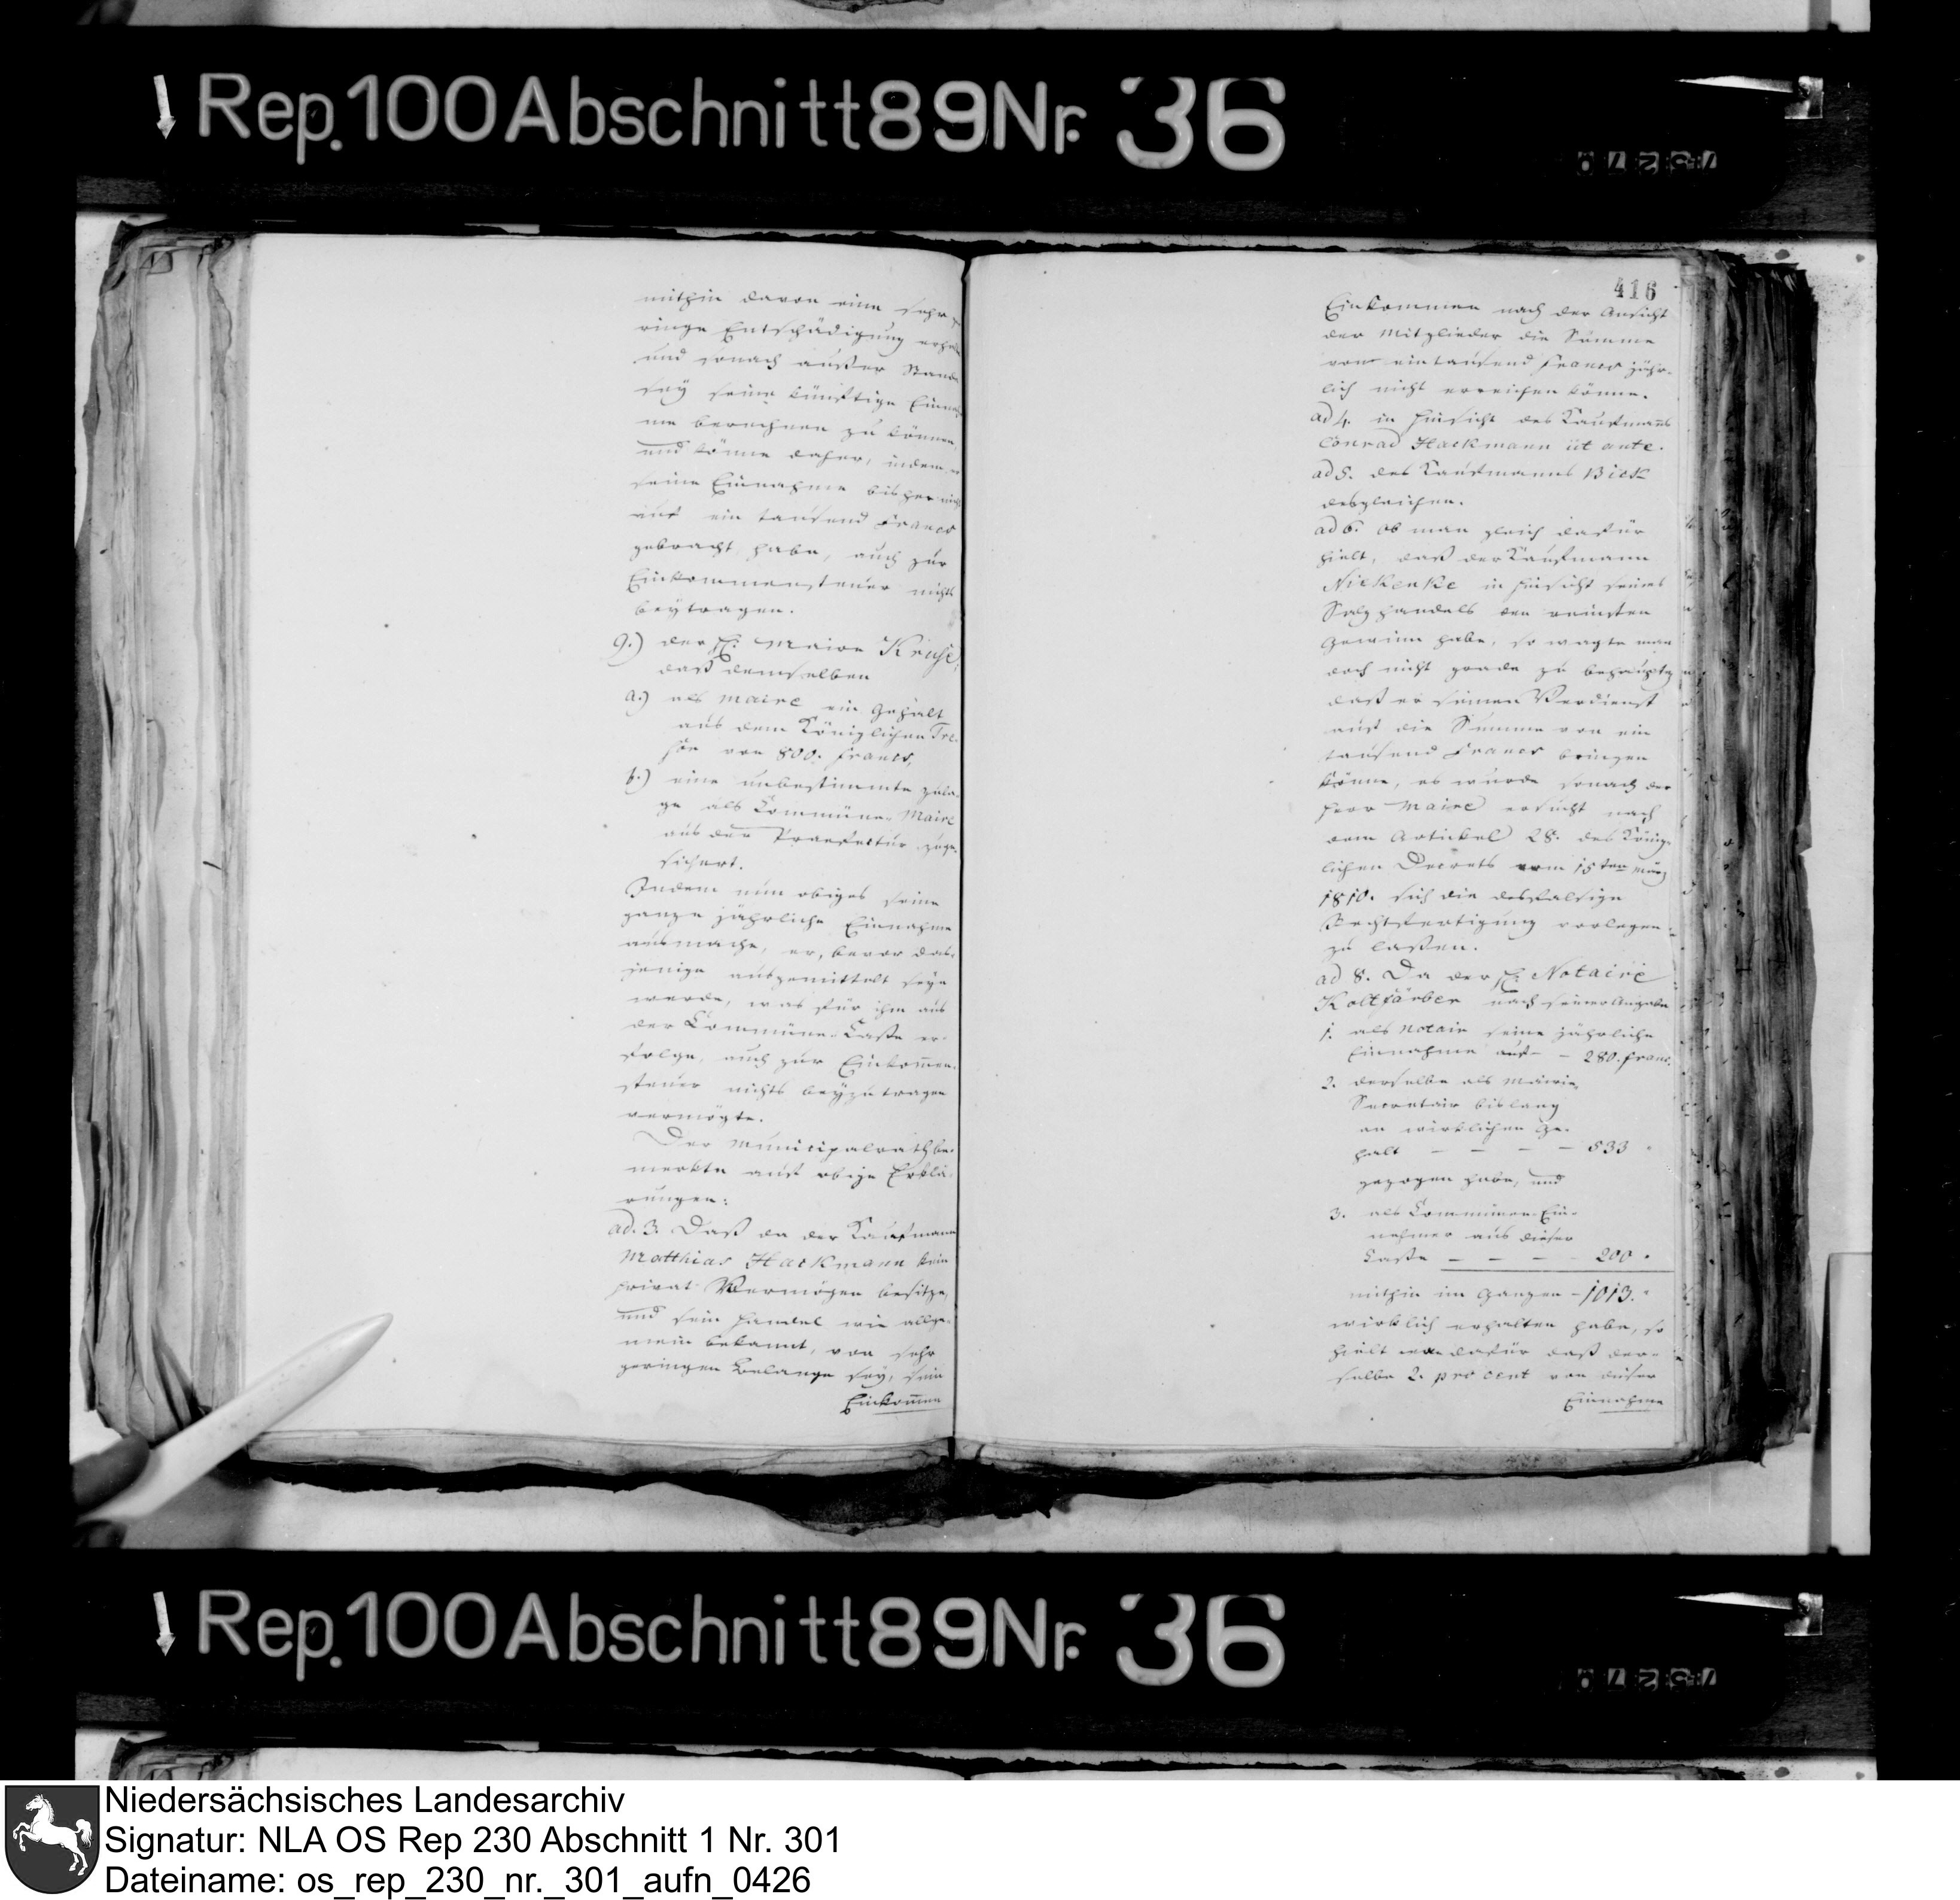 Rep. 100 Abschnitt 89 Nr. 36
mithin davon eine sehr
ringe Entschädigung
und sonach außer Stande
sey seine künftige
me berechnen zu können,
und könne daher, indem er
seine Einnahme bisher nicht
auf ein tausend Francs
gebracht habe, auch zur
Einkommensteuer nichts
beytragen.
9.) der H. Maire Kruse,
daß demselben
a.) als Maire ein Gehalt
aus dem Königlichen Tre-
sor von 800. Francs,
b.) eine unbestimmte Zula-
ge als Commüne-Maire
aus der Praefectur zuge-
sichert.
Indem nun obiges seine
ganze jährliche Einnahme
ausmache, er, bevor das-
jenige ausgemittelt seyn
werde, was für ihm aus
der Commüne-Casse er-
folge, auch zur Einkommen-
steuer nichts beyzutragen
vermögte.
Der Municipalrath be-
merkte auf obige Erklä-
rungen:
ad. 3. Daß da der Kaufmann
Matthias Hackmann kein
privat Vermögen besitze,
und sein Handel wie allge-
mein bekannt, von sehr
geringen Belange sey, sein
Einkommen
416
Einkommen nach der Ansicht
der Mitglieder die Summe
von eintausend Francs jähr-
lich nicht erreichen könne.
ad 4. in Hinsicht des Kaufmanns
Conrad Hackmann üt ante.
ad 5. des Kaufmanns
desgleichen.
ad 6. ob man gleich dafür
hielt, daß der Kaufmann
Niekenke in Hinsicht seines
Salzhandels den reinsten
Gewinn habe, so wagte man
doch nicht grade zu behaupten
daß er seinen Verdienst
auf die Summe von ein
tausend Francs bringen
könne, es wurde sonach der
Herr Maire ersucht nach
dem Artickel 28. des König-
lichen Decrets vom 15ten März
1810. sich die desfalsige
Rechtfertigung vorlegen
zu lassen.
ad 8. Da der H. Notaire
Koltfärber nach seiner Angabe
1. als Notair seine jährliche
Einnahme auf - - 280. Franc.
2. derselbe als Mairie-
Secretair bislang
an wirklichen Ge-
halt - - - - 533 "
gezogen habe, und
3. als Commünen-Ein-
nehmer aus dieser
Casse - - - - 200 "
mithin im Ganzen - 1013. "
wirklich erhalten habe, so
hielt man dafür daß der-
selbe 2. pro cent von dieser
Einnahme
Rep. 100 Abschnitt 89 Nr. 36
Niedersächsisches Landesarchiv
Signatur: NLA OS Rep 230 Abschnitt 1 Nr. 301
Dateiname: os_rep_230_nr._301_aufn_0426